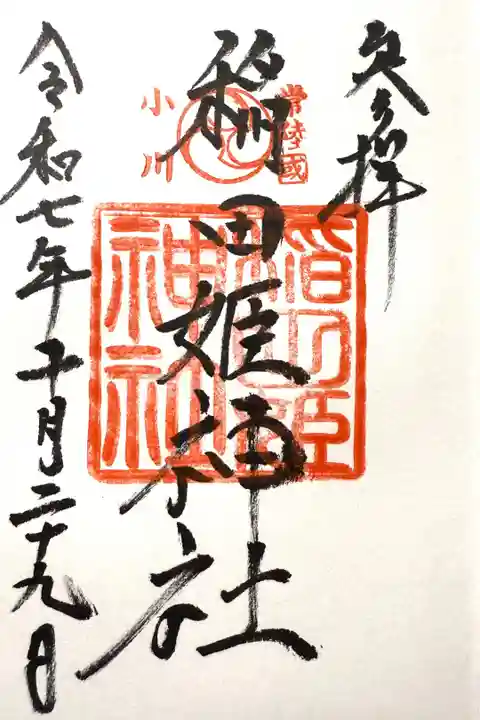 奉拝
常陸國
稲田姫神社
小川
令和七年十月二十九日